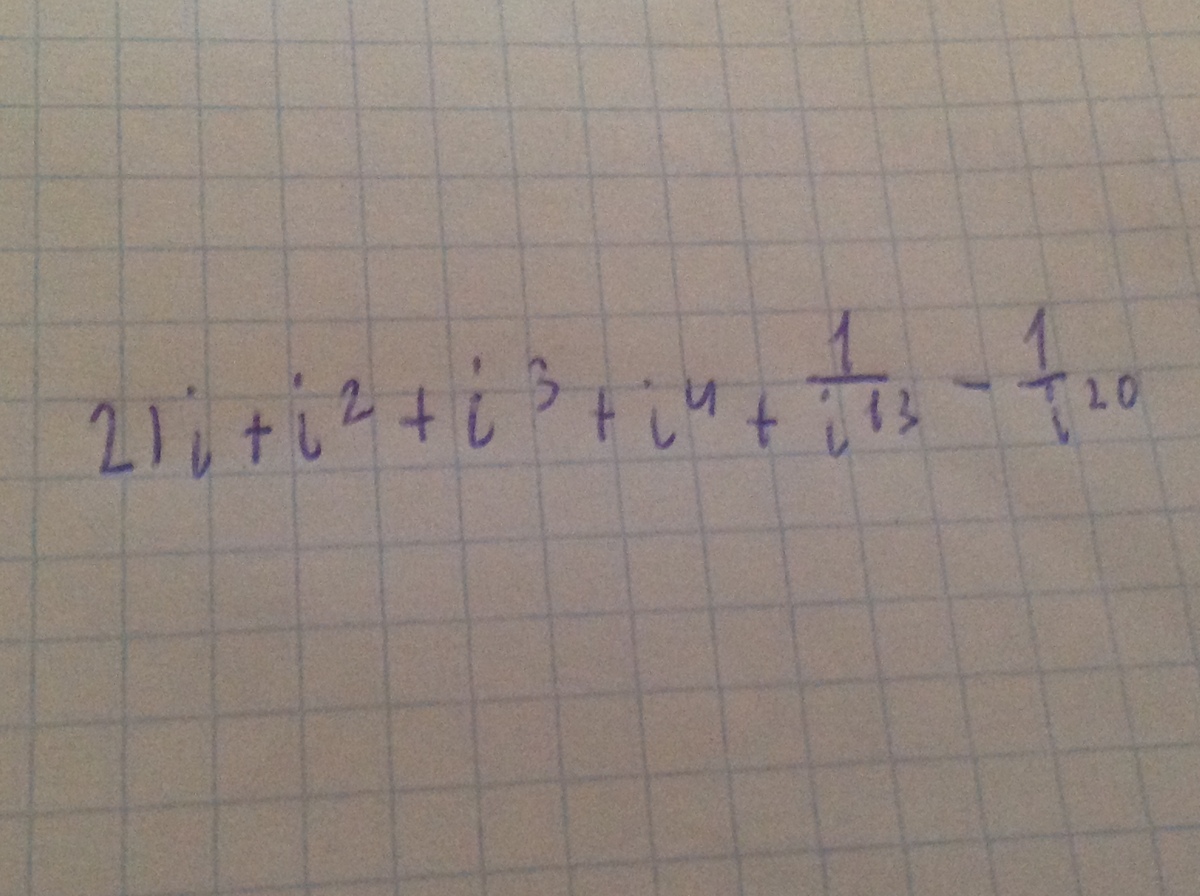 21i + i² + i³ + i⁴ + 1/i¹³ - 1/i²⁰